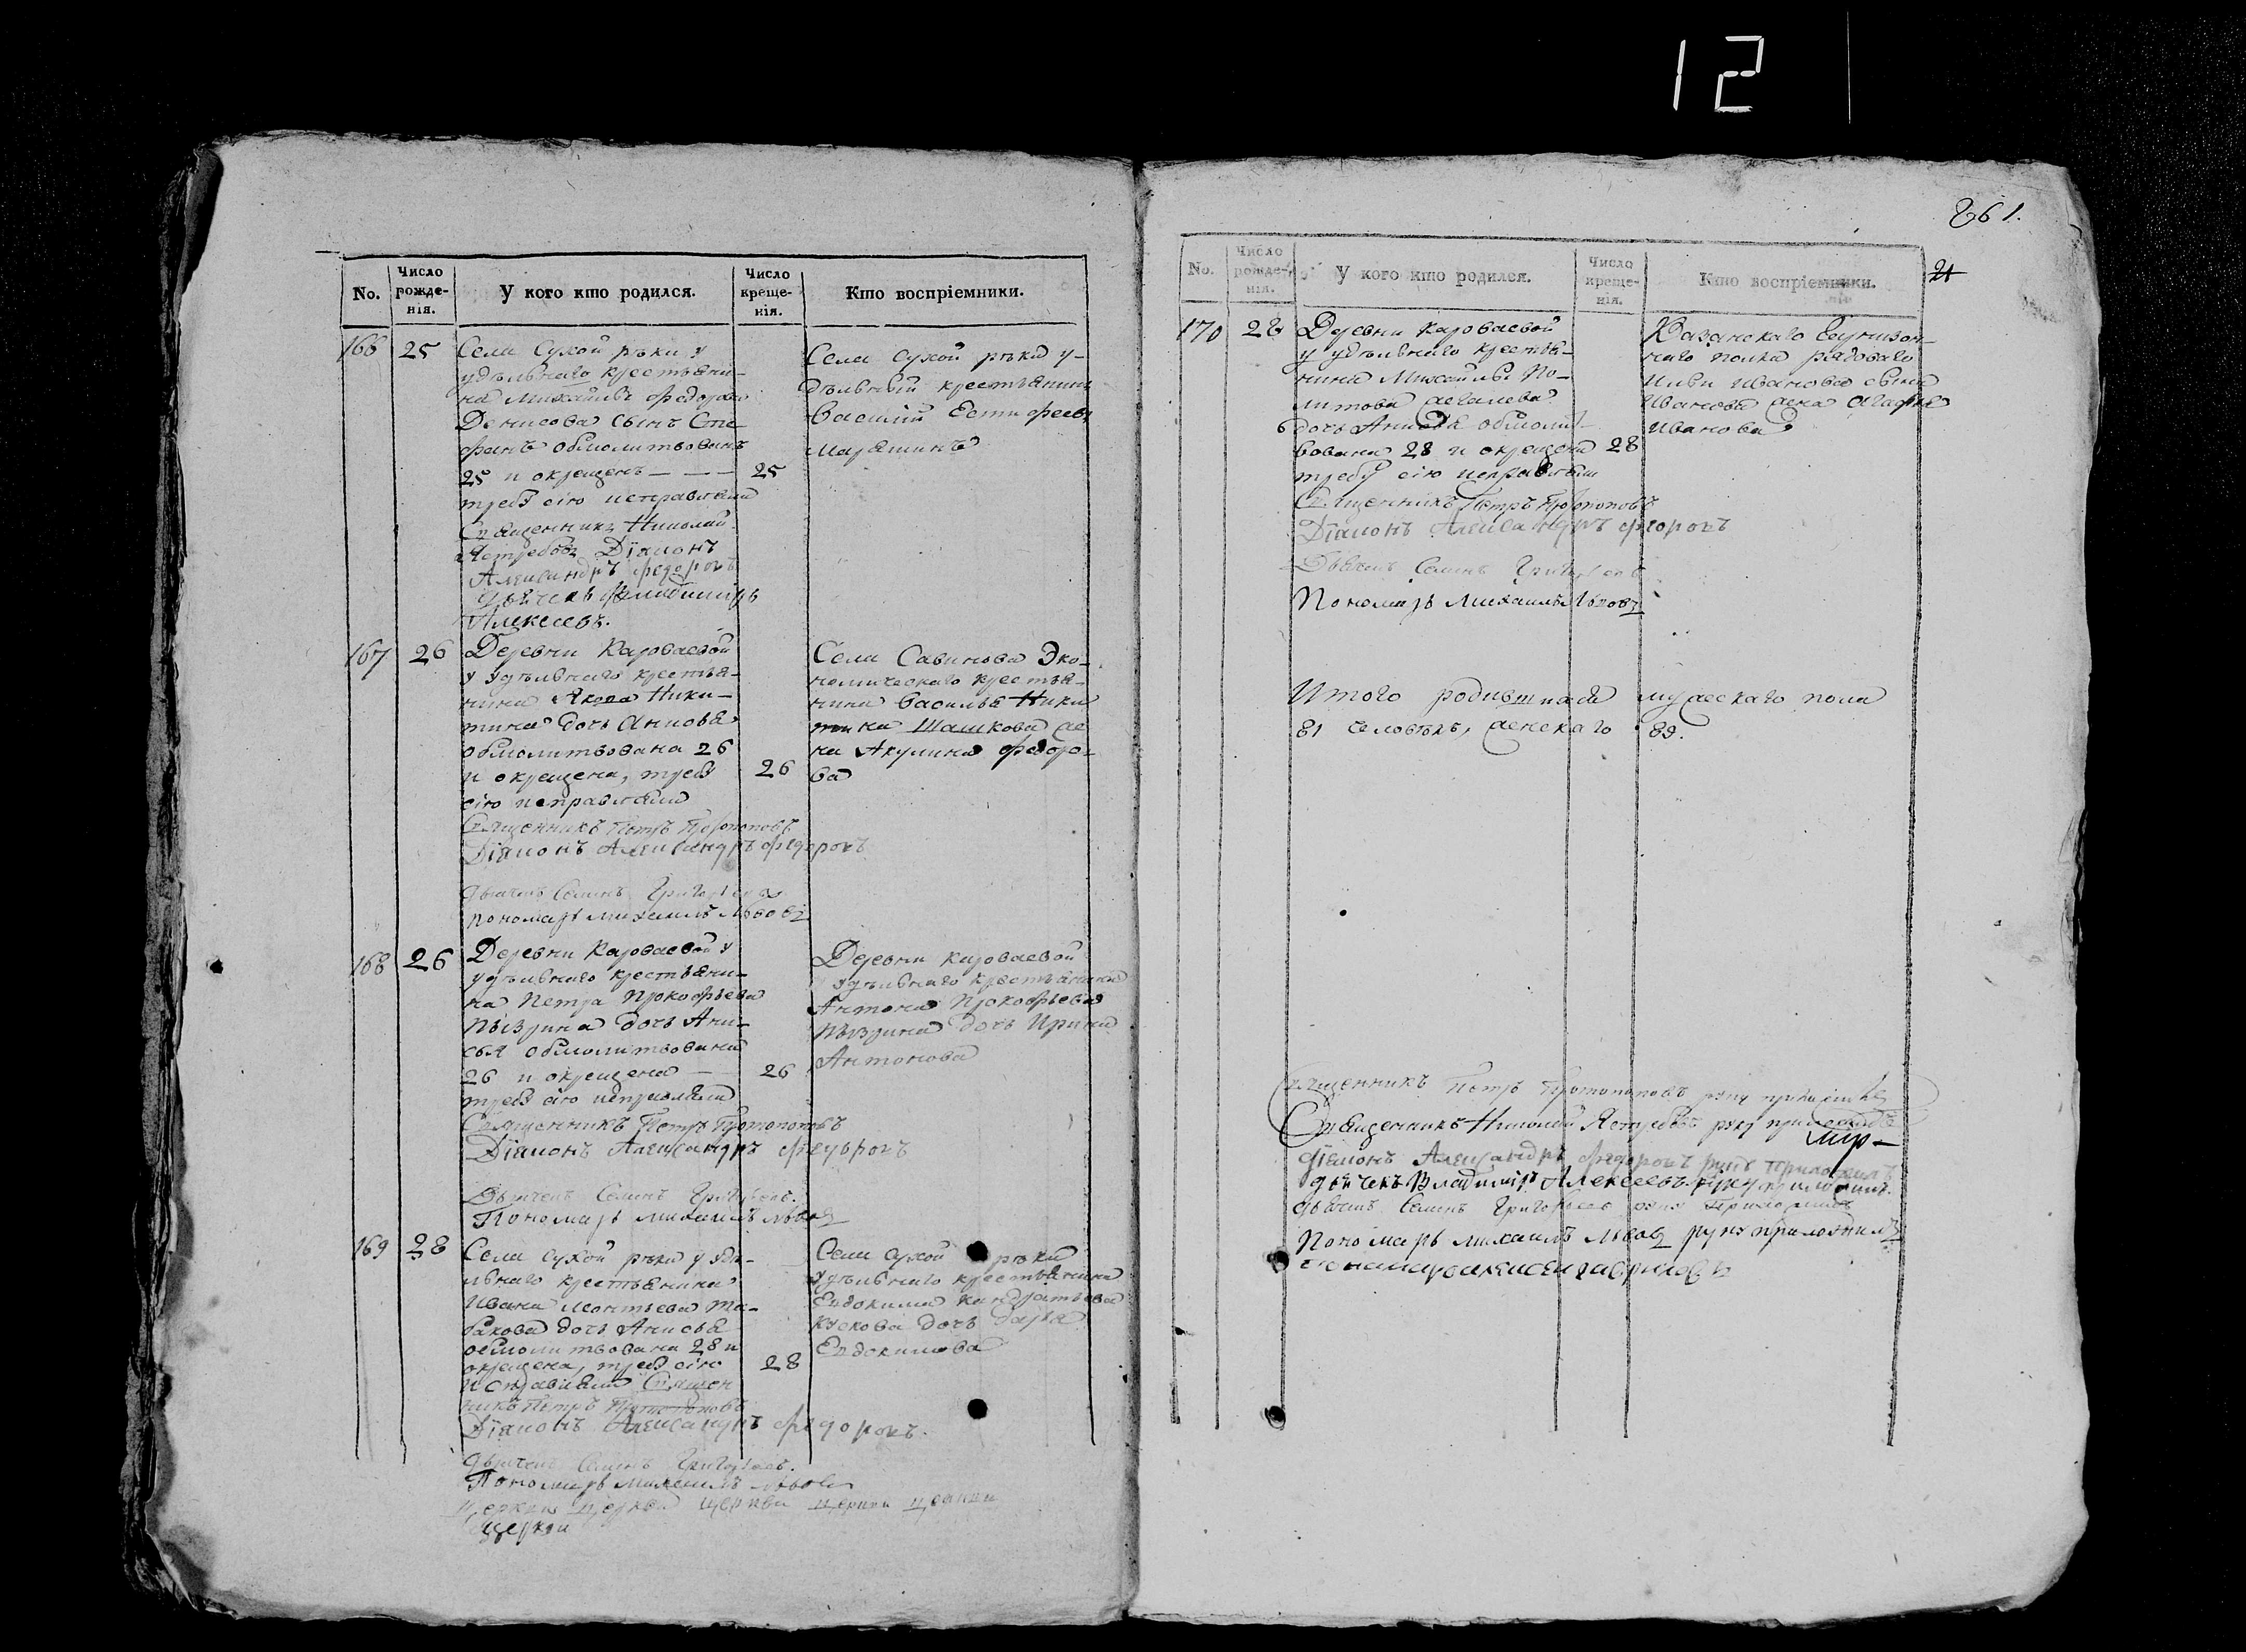 12
No.
Число рожде-нія.
У кого кто родился.
Число креще-нія.
Кто воспріемники.
166
25
Села Сухой рѣки у
удѣльнаго крестьяни-
на Михайлы Федорова
Денисова сынъ Сте-
фанъ обмолитвованъ
25 и окрещенъ — — —
25
требу сію исправляли
Священникъ Николай
Ястребовъ Діаконъ
Александръ Федоровъ
дьячекъ Владимиръ
Алексеевъ.
Села Сухой рѣки у-
дѣльный крестьянинъ
Василій
167
26
Деревни Караваевой
у удѣльнаго крестья-
нина Якова Ники-
тина дочь Анисья
обмолитвована 26
и окрещена, требу
26
сію исправляли
Священникъ Петръ Протопоповъ
Діаконъ Александръ Федоровъ
дьячекъ Семенъ Григорьевъ
пономарь михаилъ львовъ
Села Савинова Эко-
номическаго крестья-
нина Василья Ники
тина Шашкова же
на Акулина Федоро-
ва
168
26
Деревни Караваевой у
удѣльнаго крестьяни-
на Петра Прокофьева
Пызрина дочь Ани-
сья обмолитвована
26 и окрещена —
26
требу сію исправляли
Священникъ Петръ Протопоповъ
Діаконъ Александръ Федоровъ
Дьячекъ Семенъ Григорьевъ.
Пономарь михаилъ львовъ
Деревни Караваевой
удѣльнаго крестьянина
Антона Прокофьева
Пызрина дочь Ирина
Антонова
169
28
Села Сухой рѣки у удѣ-
льнаго крестьянина
Ивана Леонтьева Та-
бакова дочь Анисья
обмолитвована 28 и
окрещена, требу сію
28
исправляли Священ
никъ Петръ Протопоповъ
Діаконъ Александръ Федоровъ.
дьячекъ Семенъ Григорьевъ.
Пономарь михаилъ львовъ
церкви церкви церкви церкви церкви
церкви
Села Сухой рѣки
удѣльнаго крестьянина
Евдокима Кандратьева
Кускова дочь Дарья
Евдокимова
261.
21
No.
Число рожде-нія.
У кого кто родился.
Число креще-нія.
Кто воспріемники.
170
28
Деревни Караваевой
у удѣльнаго крестья-
нина Михайлы По-
литова
дочь Анисья обмолит-
вована 28 и окрещена
28
требу сію исправляли
Священникъ Петръ Протопоповъ
Діаконъ Александръ Федоровъ
Дьячекъ Семенъ Григорьевъ
Пономарь михаилъ львовъ
Казанскаго Гарнизон-
наго полка рядоваго
Ивана сына
Иванова жена Агафья
Иванова
Итого родившихся мужескаго пола
81 человѣкъ, женскаго 89.
Священникъ Петръ Протопоповъ руку приложилъ
Священникъ Николай Ястребовъ руку приложилъ
діаконъ Александръ Федоровъ руку приложилъ
дьячекъ Владимиръ Алексеевъ руку приложилъ.
дьячекъ Семенъ Григорьевъ руку приложилъ
Пономарь михаилъ львовъ руку приложилъ
пономарь алексей гавриловъ